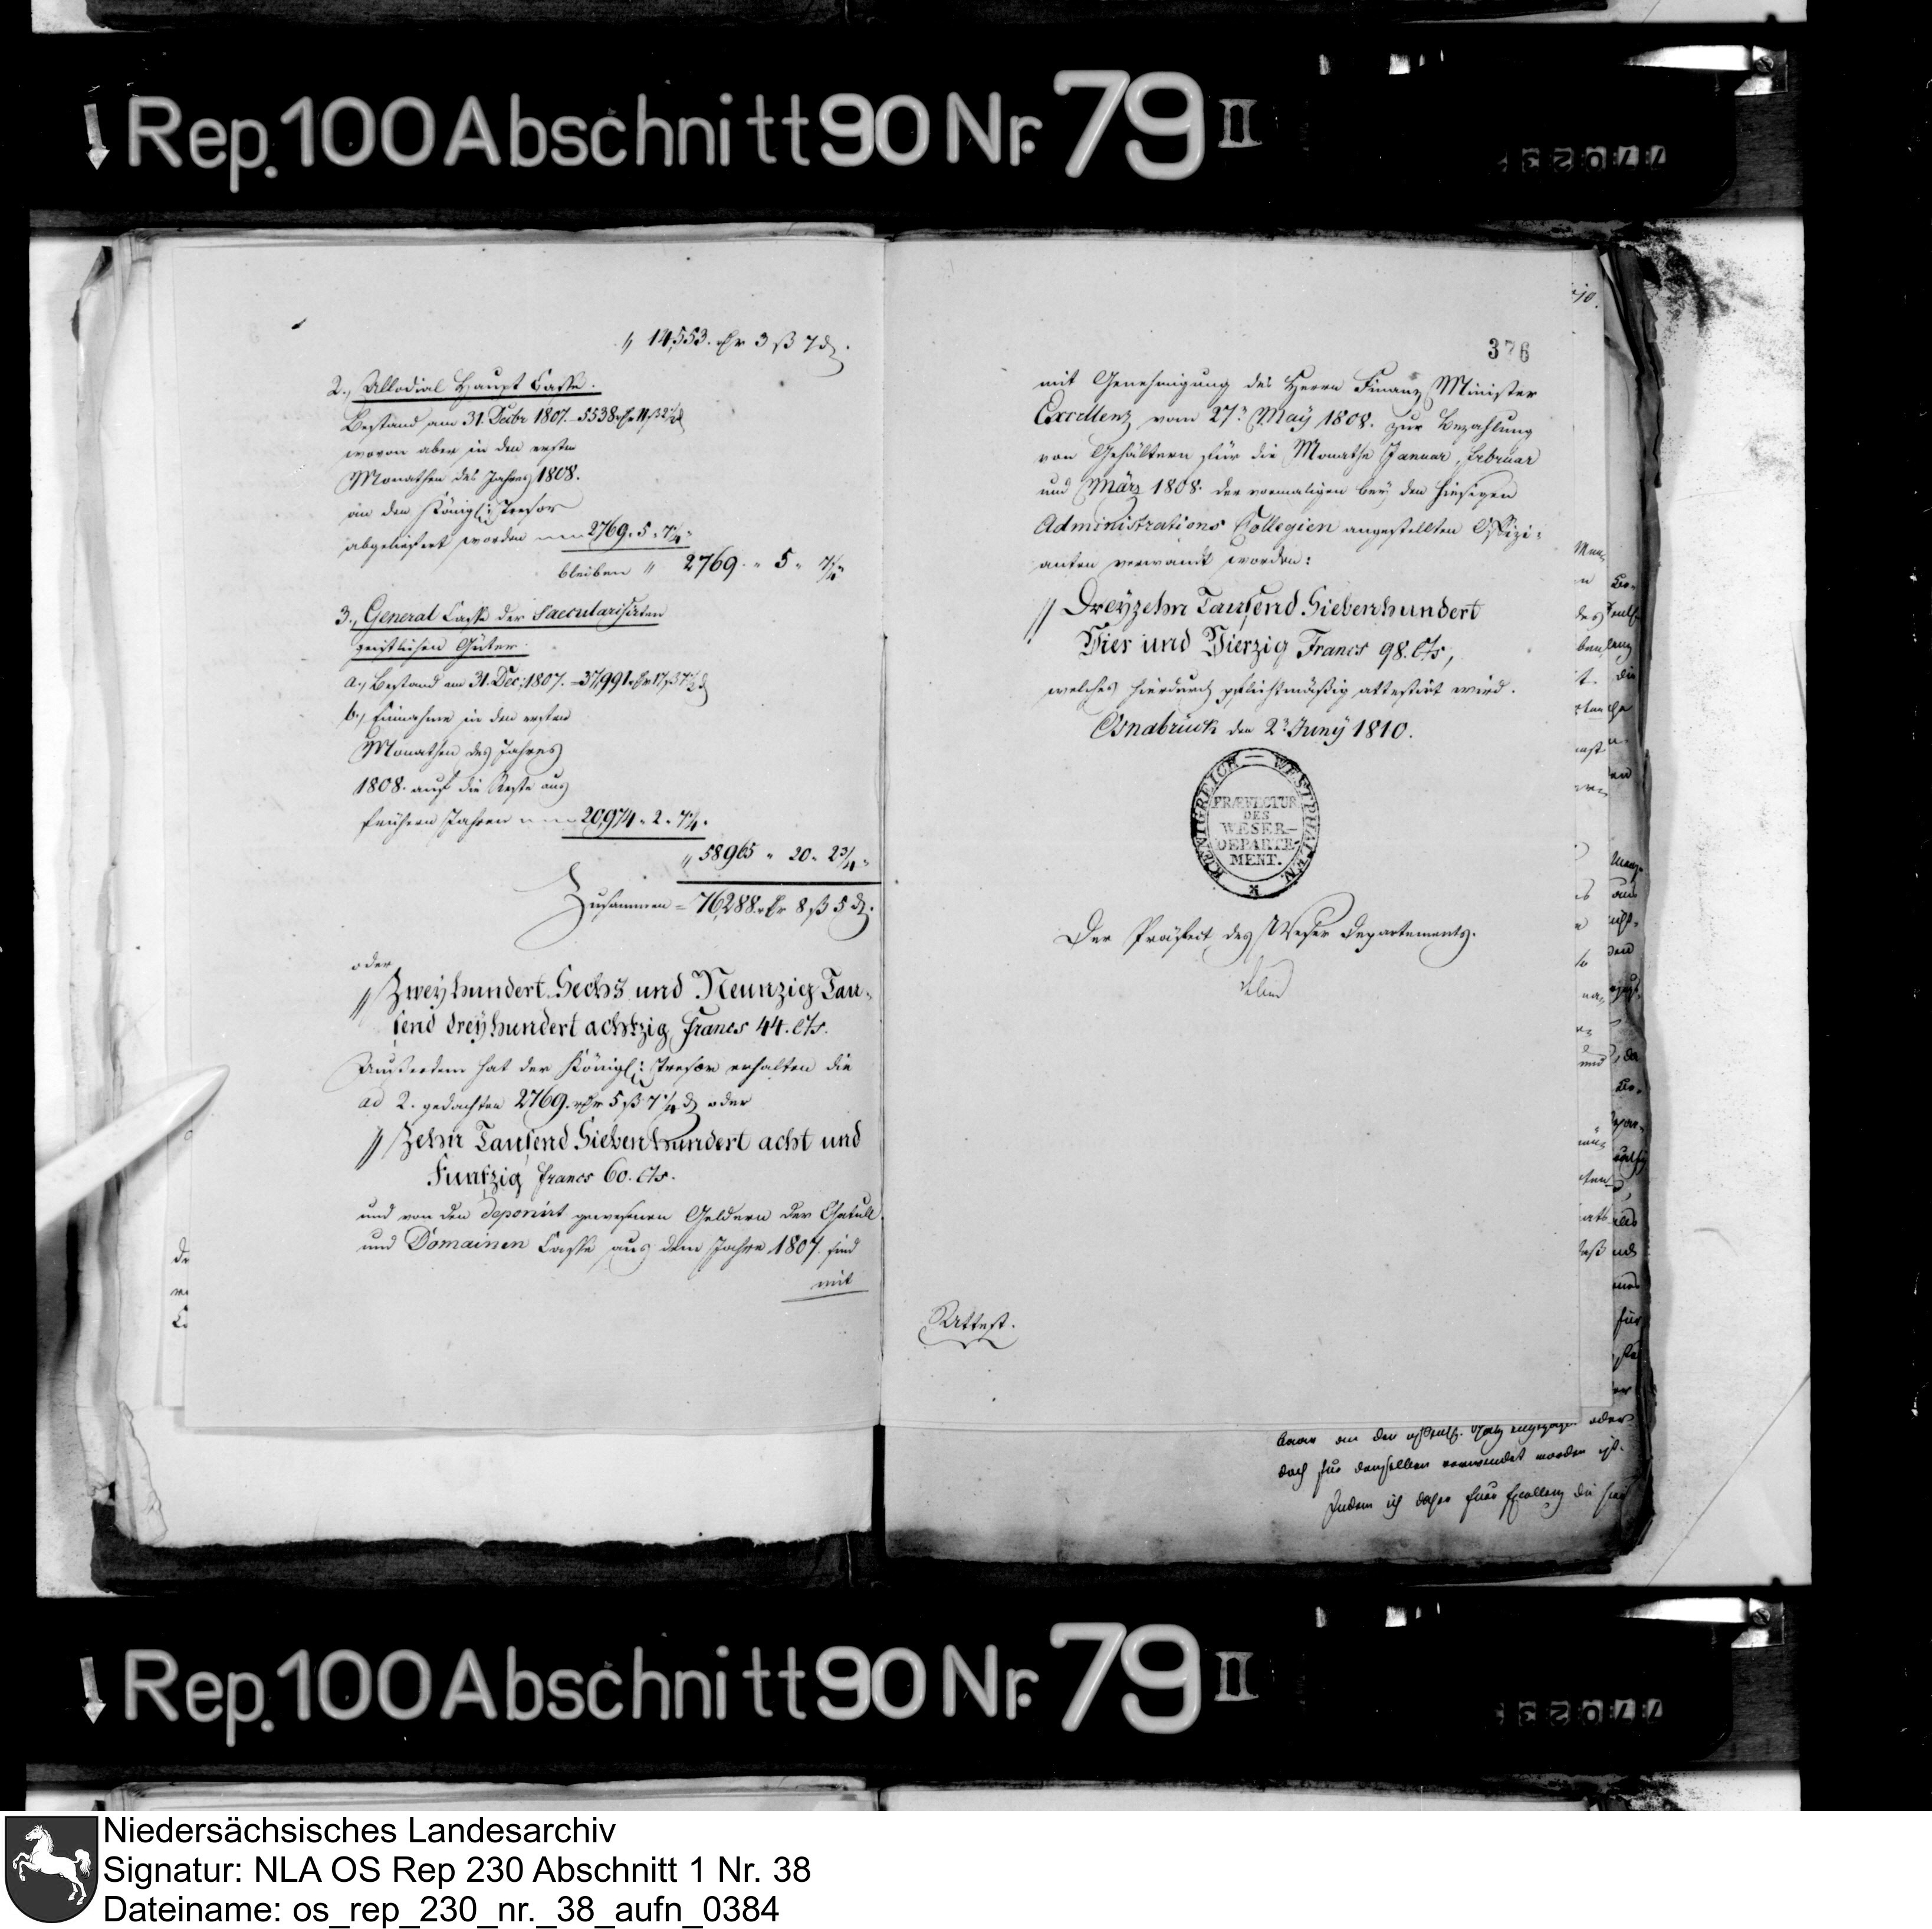 Rep. 100 Abschnitt 90 Nr. 79 II
77023
" 14,553. rthr 3 ß 7 d.
2., Allodial Haupt Casse.
Bestand am 31. Decbr 1807. 5538 rthr 11 ß 2½ d
wovon aber in den ersten
Monathen des Jahres 1808.
an den Königl: Tresor
abgeliefert worden 2769. 5. 7¼.
bleiben " 2769. " 5 " 7¼ "
3., General Casse der Saecularisirten
geistlichen Güter.
a., Bestand am 31. Dec: 1807. 37,991 rthr 17 ß 7½ d
b., Einnahme in den ersten
Monathen des Jahres
1808. auf die Reste aus
frühern Jahren 20,974. 2. 7¼.
" 58965 " 20 " 2¾ "
Zusammen = 76,288. rthr 8 ß 5 d.
oder
// Zweyhundert Sechs und Neunzig Tau-
send dreyhundert achtzig Francs 44. Cts.
Außerdem hat der Königl: Tresor erhalten die
ad 2. gedachten 2769. rthr 5 ß 7¼ d oder
// Zehn Tausend Siebenhundert acht und
Funfzig Francs 60. Cts.
und von den deponirt gewesenen Geldern der Chatull
und Domainen Casse aus dem Jahre 1807. sind
mit
376
mit Genehmigung des Herrn Finanz Minister
Excellenz vom 27. May 1808. zur Bezahlung
von Gehältern für die Monathe Januar, Februar
und März 1808. der vormaligen bey den hiesigen
Administrations Collegien angestellten Offizi-
anten verwandt worden:
// Dreyzehn Tausend Siebenhundert
Vier und Vierzig Francs 98. Cts,
welches hierdurch pflichtmäßig attestirt wird.
Osnabrück den 2. Juny 1810.
KOENIGREICH — WESTPHALEN
PRÆFECTUR
DES
WESER-
DEPARTE-
MENT.
Der Präfect des Weser Departements.
Attest.
baar an den öffentl. Schatz oder
doch für denselben verwendet worden ist.
Indem ich daher Euer Excellenz die
Rep. 100 Abschnitt 90 Nr. 79 II
77023
Niedersächsisches Landesarchiv
Signatur: NLA OS Rep 230 Abschnitt 1 Nr. 38
Dateiname: os_rep_230_nr._38_aufn_0384